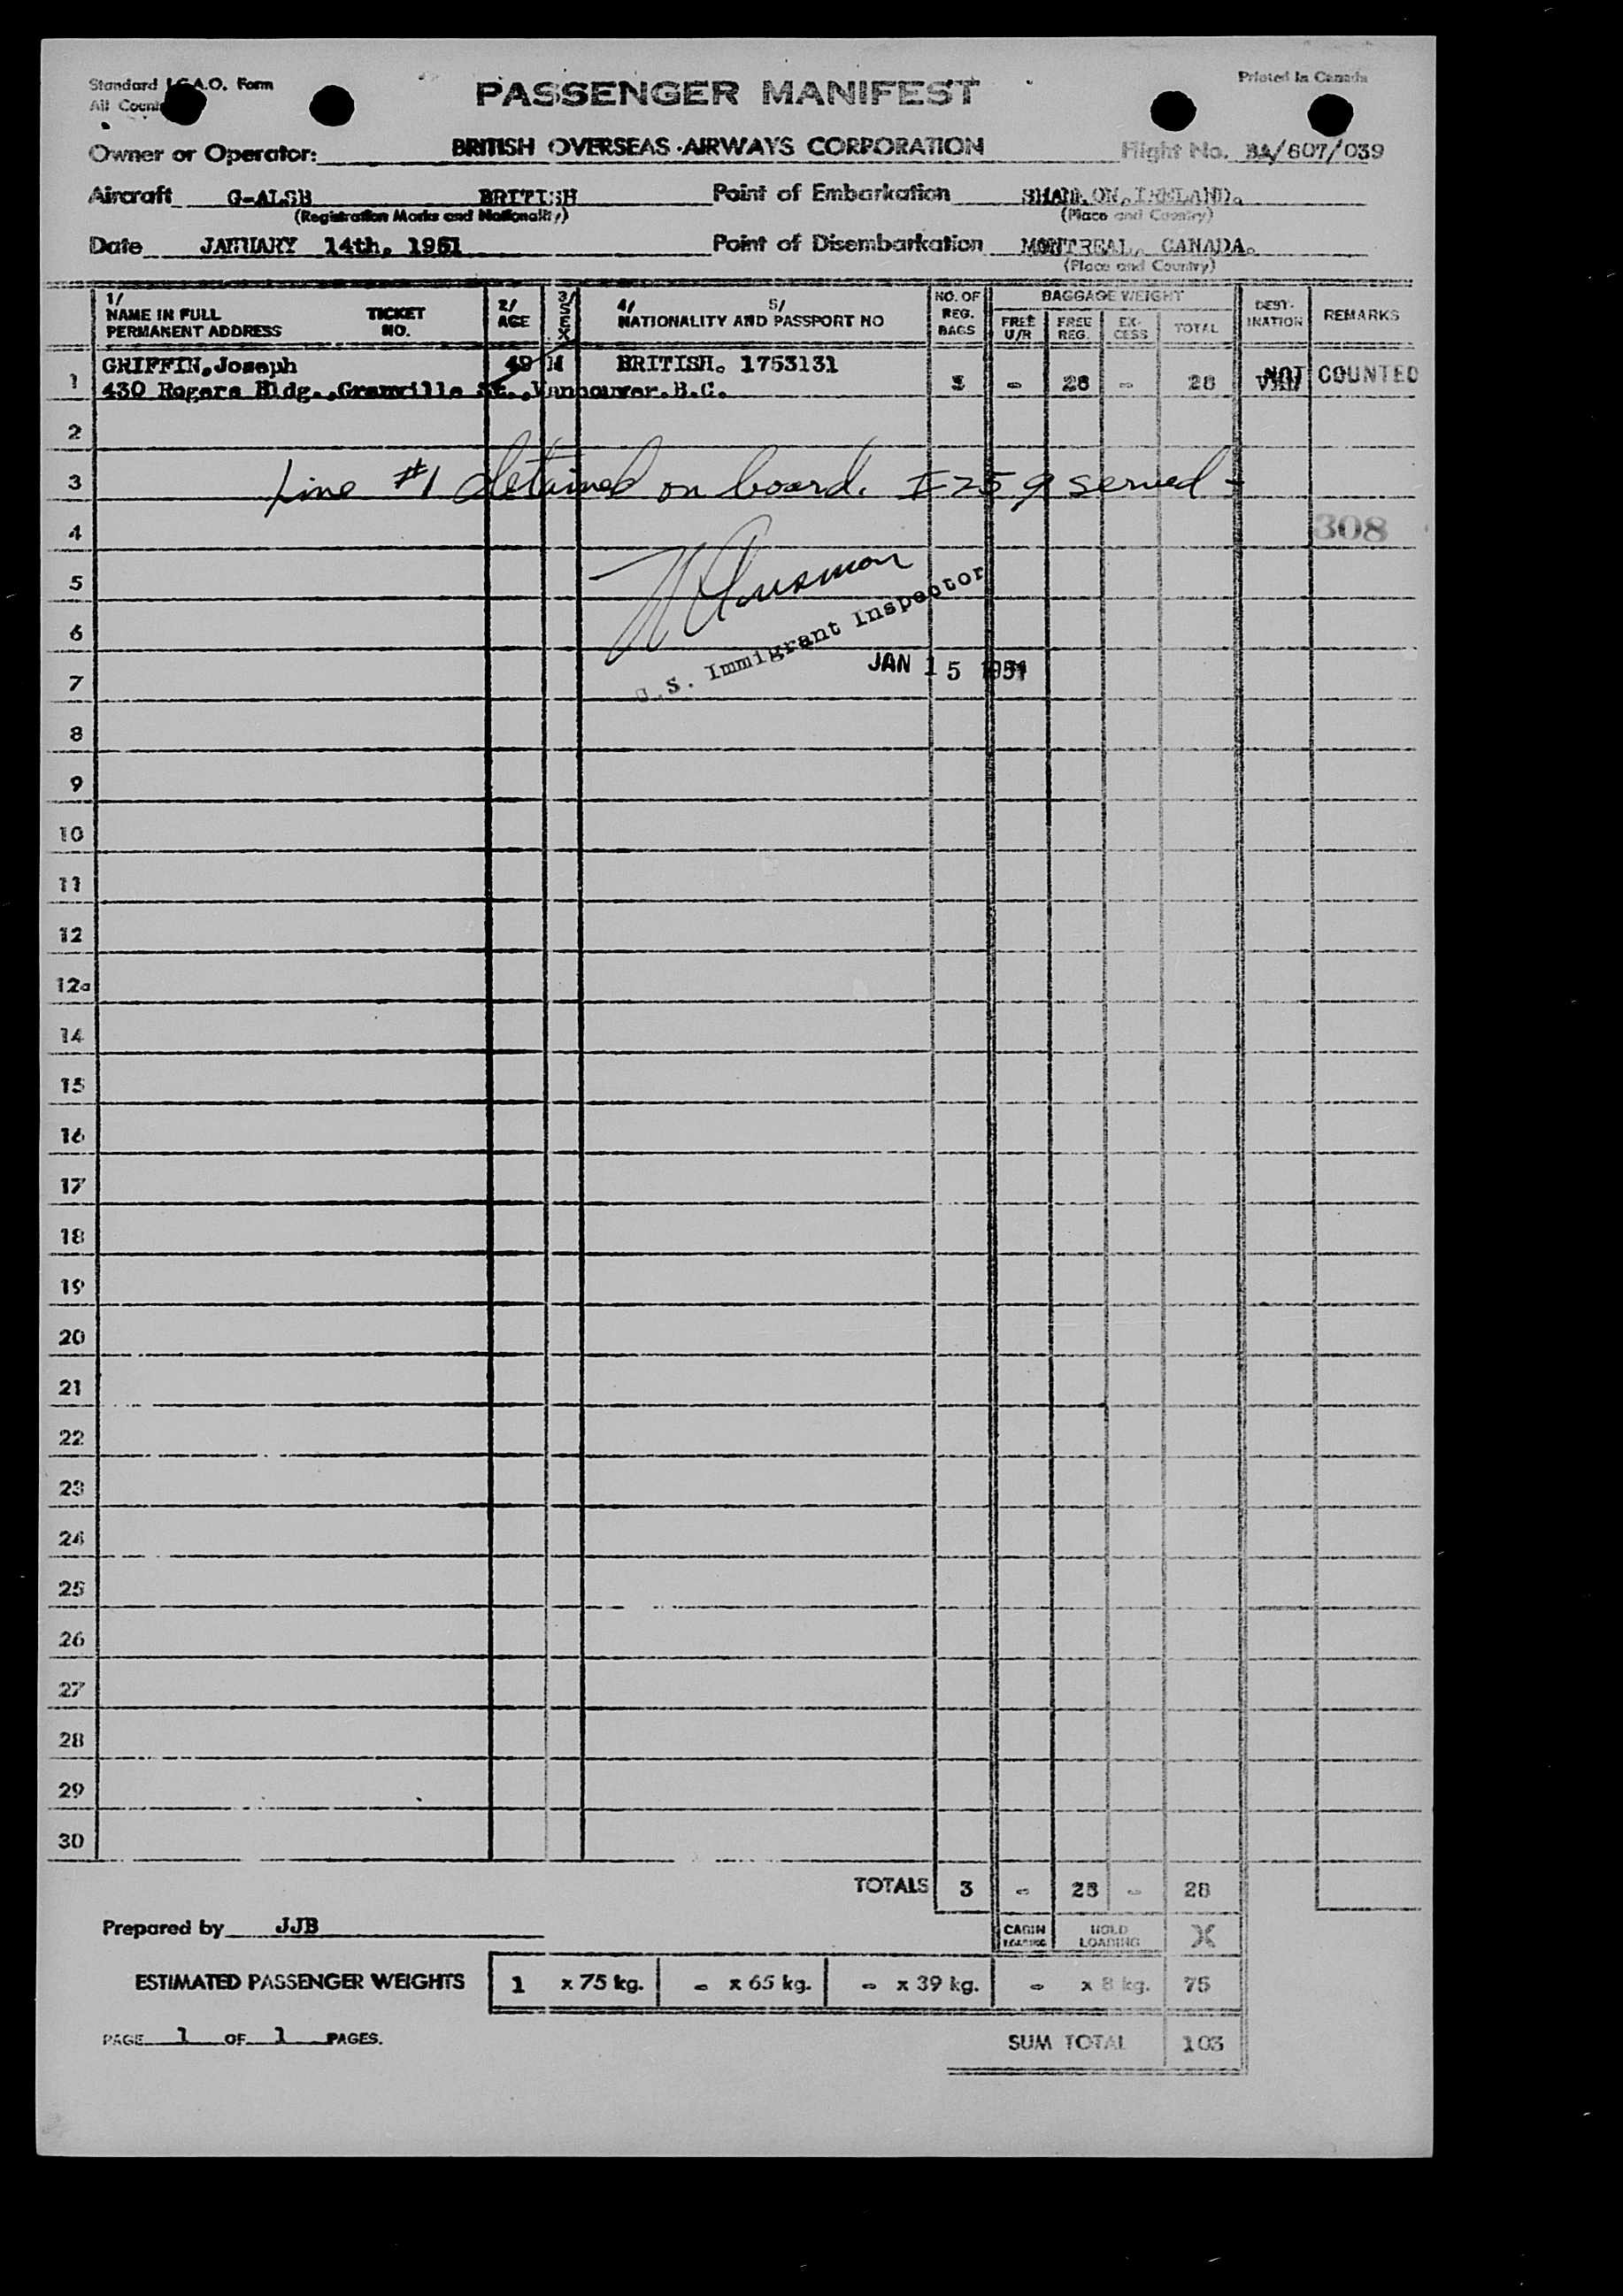 Standard I.C.A.O. Form
All
PASSENGER MANIFEST
Printed in Canada
Owner or Operator: BRITISH OVERSEAS AIRWAYS CORPORATION Flight No. BA/607/039
Aircraft G-ALSB BRITISH Point of Embarkation SHANNON, IRELAND.
(Registration Marks and Nationality) (Place and Country)
Date JANUARY 14th, 1951 Point of Disembarkation MONTREAL, CANADA.
(Place and Country)
1/ NAME IN FULL PERMANENT ADDRESS TICKET NO. 2/ AGE 3/ SEX 4/ 5/ NATIONALITY AND PASSPORT NO NO. OF REG. BAGS BAGGAGE WEIGHT FREE U/R FREE REG. EX-CESS TOTAL DEST-INATION REMARKS
1 GRIFFIN, Joseph 49 M BRITISH. 1753131
430 Rogers Bldg., Granville St., Vancouver. B.C. 3 - 28 - 28 VAN NOT COUNTED
2
3 Line #1 detained on board. I-259 served -
4 308
5
6 U.S. Immigrant Inspector
7 JAN 15 1951
8
9
10
11
12
12a
14
15
16
17
18
19
20
21
22
23
24
25
26
27
28
29
30
TOTALS 3 - 28 - 28
Prepared by JJB CABIN LOADING HOLD LOADING X
ESTIMATED PASSENGER WEIGHTS 1 x 75 kg. - x 65 kg. - x 39 kg. - x 8 kg. 75
PAGE 1 OF 1 PAGES. SUM TOTAL 103